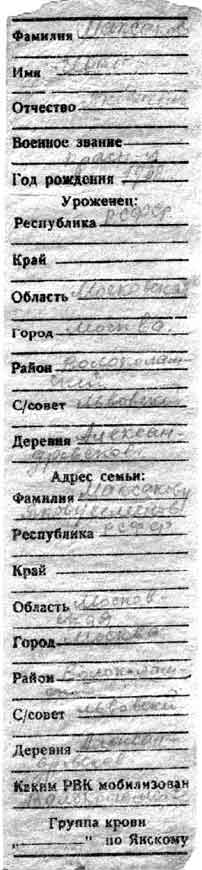 Фамилия Максаков
Имя
Отчество
Военное звание
красн-ц
Год рождения 1908
Уроженец:
Республика РСФСР
Край
Область Московская
Город Москва.
Район Волоколам-
ский
С/совет Львовский
Деревня Алексан-
дровское
Адрес семьи:
Фамилия Максакову
Республика РСФСР
Край
Область Москов-
ская
Город Москва
Район Волоколам-
ский
С/совет Львовский
Деревня Алексан-
дровское
Каким РВК мобилизован
Волоколамский
Группа крови
„ “ по Янскому